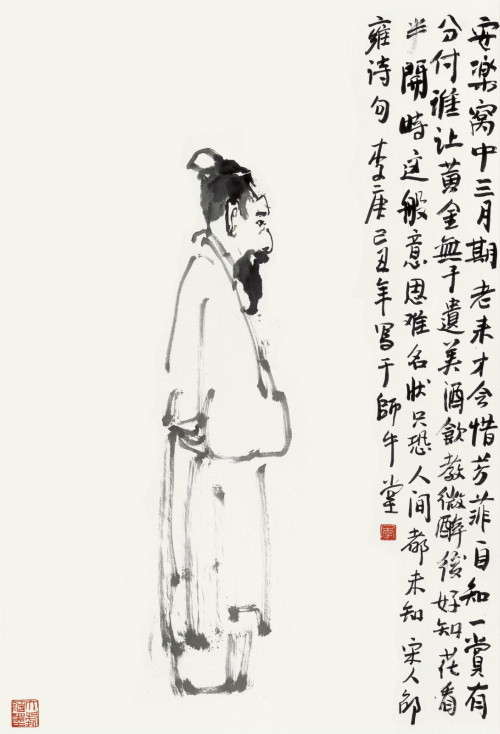 安樂窩中三月期老来才会惜芳菲自知一賞有
分付谁让黄金無于遺美酒飲教微醉後好知花看
半開時这般意思难名状只恐人间都未知 宋人邵
雍诗句 李庚己丑年写于師牛堂